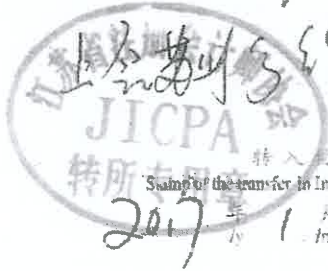 上会苏州分
江苏省注册会计师协会
JICPA
转所专用章
转入
Stamp of the transfer-in In
2017 年 1 月
/y /m